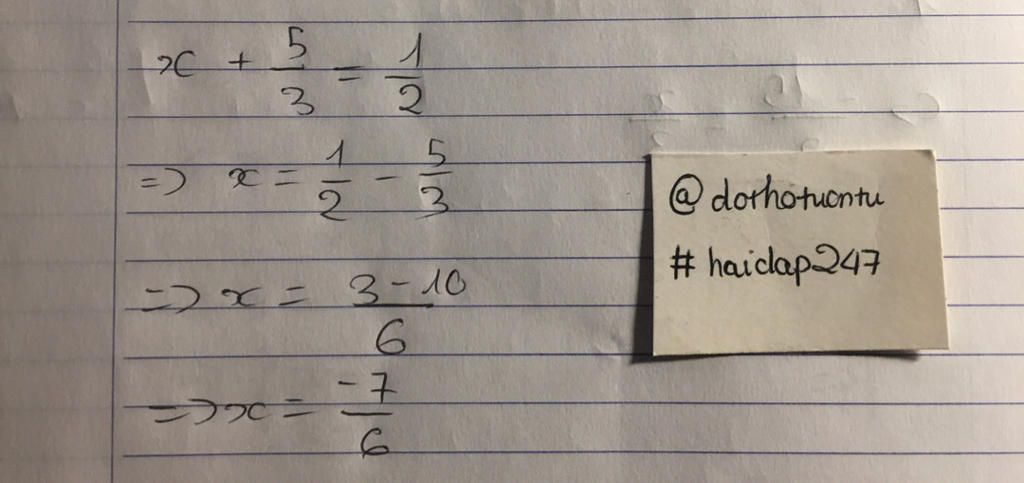 x + 5/3 = 1/2
=> x = 1/2 - 5/3
=> x = 3 - 10/6
=> x = -7/6
@dothotuontu
#haidap247